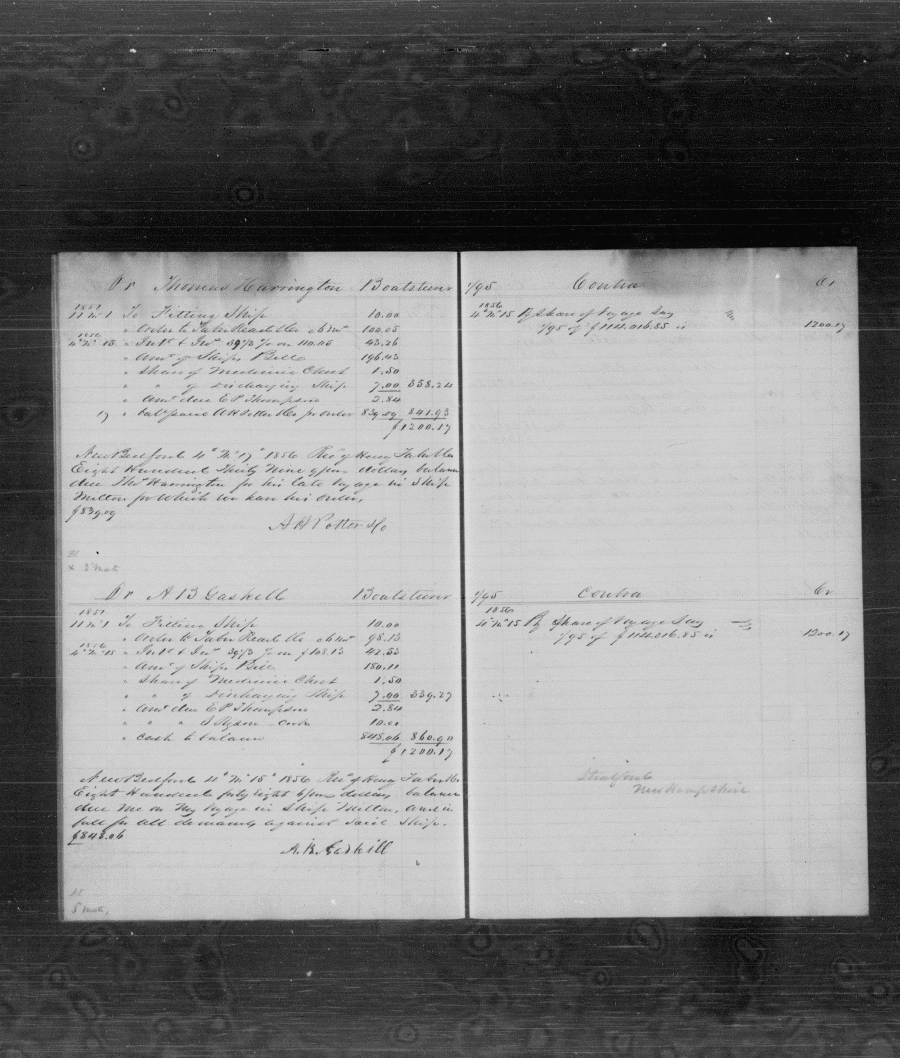 Dr Thomas Harrington Boatsteerer 1/95 Contra Cr
1851
11 Mo 1 To Fitting Ship 10.00
" Order to Taber Read & Co 100.05
1856
4 Mo 15 " Int & Ins 39 1/3 % on 110.05 43.26
" Amt of Ships Bill 196.43
" Share of Medicine Chest 1.50
" " of Discharging Ship 7.00 358.24
" Amt due E P Thompson 2.84
17 " bal paid A H Potter & Co pr order 839.09 841.93
$1200.17
1856
4 Mo 15 By Share of Voyage Say
1/95 of $114.016.85 is 1200.17
New Bedford 4 Mo 17 1856 Recd of Henry Taber & Co
Eight Hundred Thirty Nine 9/100 dollars balance
due Thos Harrington for his late voyage in Ship
Milton for which we have his order,
$839.09
A H Potter & Co
x 3 mate
Dr A B Gaskell Boatsteerer 1/95 Contra Cr
1851
11 Mo 1 To Fitting Ship 10.00
" Order to Taber Read & Co 98.13
1856
4 Mo 15 " Int & Ins 39 1/3 % on $108.13 42.53
" Amt of Ships Bill 150.11
" Share of Medicine Chest 1.50
" " of Discharging Ship 7.00 339.27
" Amt due E P Thompson 2.84
" " " Cook 10.00
" Cash to balance 848.06 860.90
$1200.17
1856
4 Mo 15 By Share of Voyage Say
1/95 of $114.016.85 is 1200.17
New Bedford 4 Mo 15 1856 Recd of Henry Taber & Co
Eight Hundred forty eight 6/100 dollars balance
due me on my voyage in Ship Milton, and in
full for all demands against said Ship.
$848.06
A. B. Gaskill
Stratford
New Hampshire
5 mate,